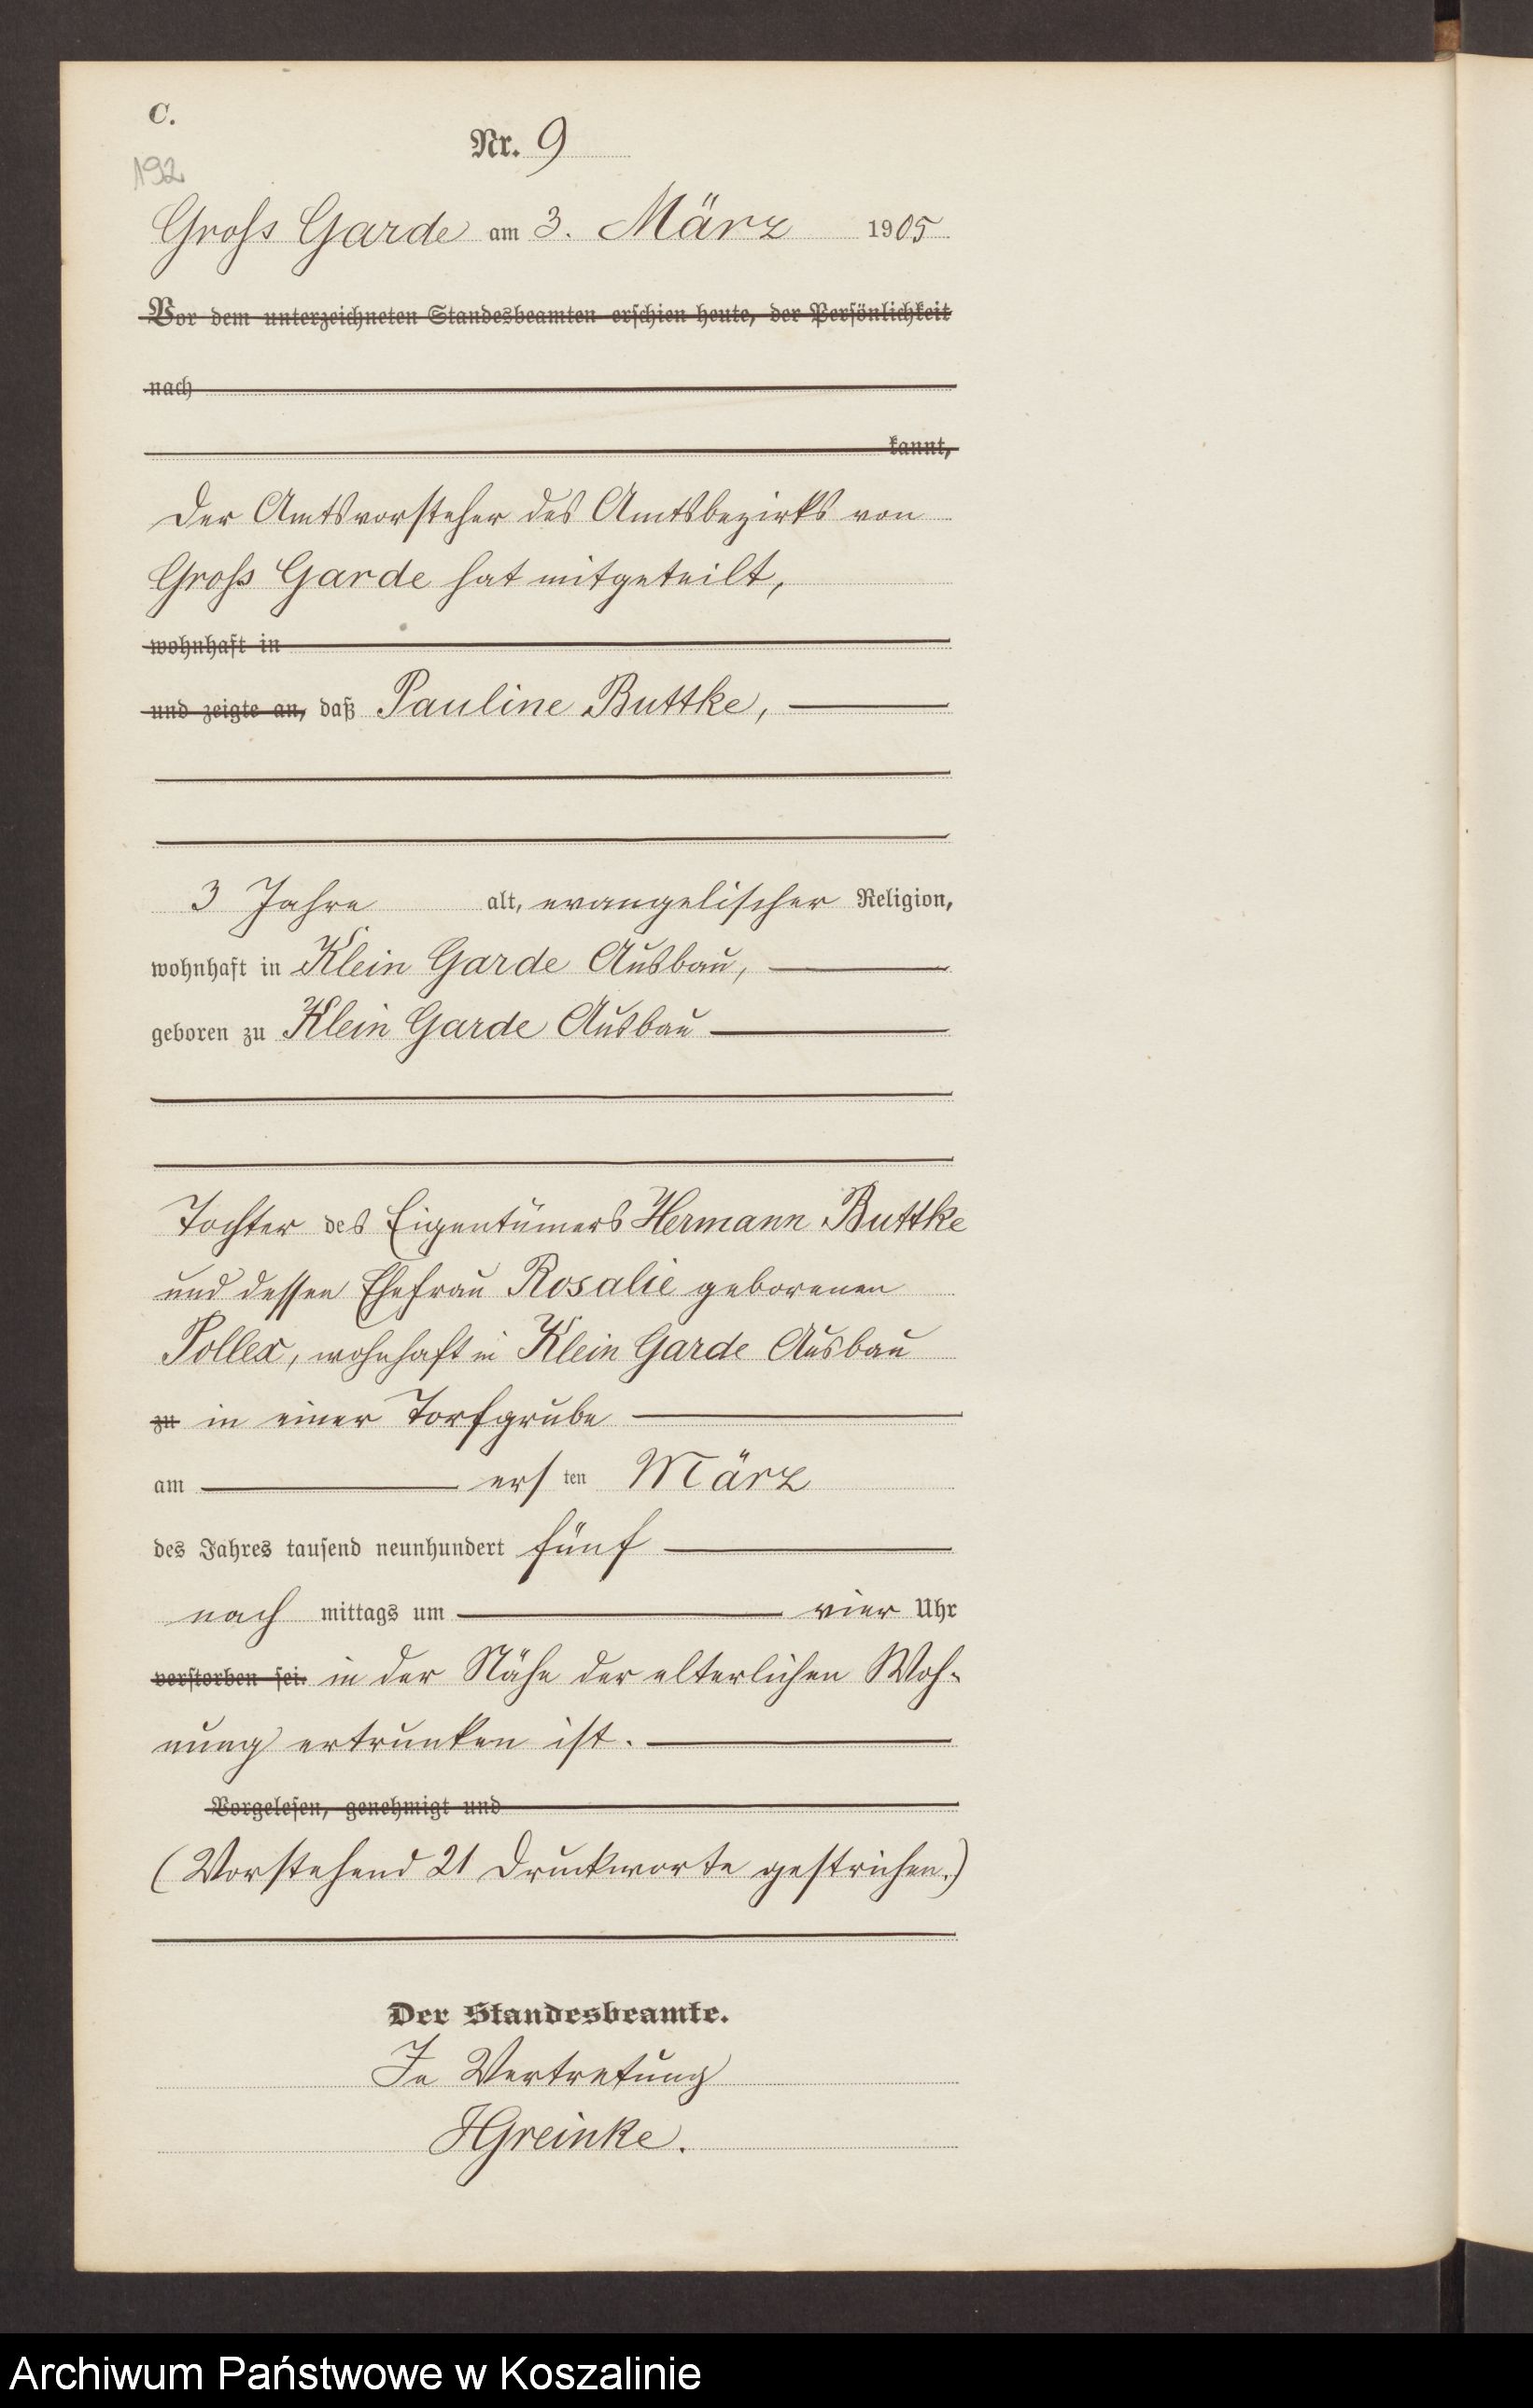 C.
Nr. 9
192
Gross Garde am 3. März 1905
Vor dem unterzeichneten Standesbeamten erschien heute, der Persönlichkeit
nach
kannt,
Der Amtsvorsteher des Amtsbezirks von
Gross Garde hat mitgeteilt,
wohnhaft in
und zeigte an, daß Pauline Buttke,
3 Jahre alt, evangelischer Religion,
wohnhaft in Klein Garde Ausbau,
geboren zu Klein Garde Ausbau
Tochter des Eigentümers Hermann Buttke
und dessen Ehefrau Rosalie geborenen
Pollex, wohnhaft in Klein Garde Ausbau
zu in einer Torfgrube
am ersten März
des Jahres tausend neunhundert fünf
nach mittags um vier Uhr
verstorben sei. in der Nähe der elterlichen Woh-
nung ertrunken ist.
Vorgelesen, genehmigt und
(Vorstehend 21 Druckworte gestrichen.)
Der Standesbeamte.
In Vertretung
HGreinke.
Archiwum Państwowe w Koszalinie